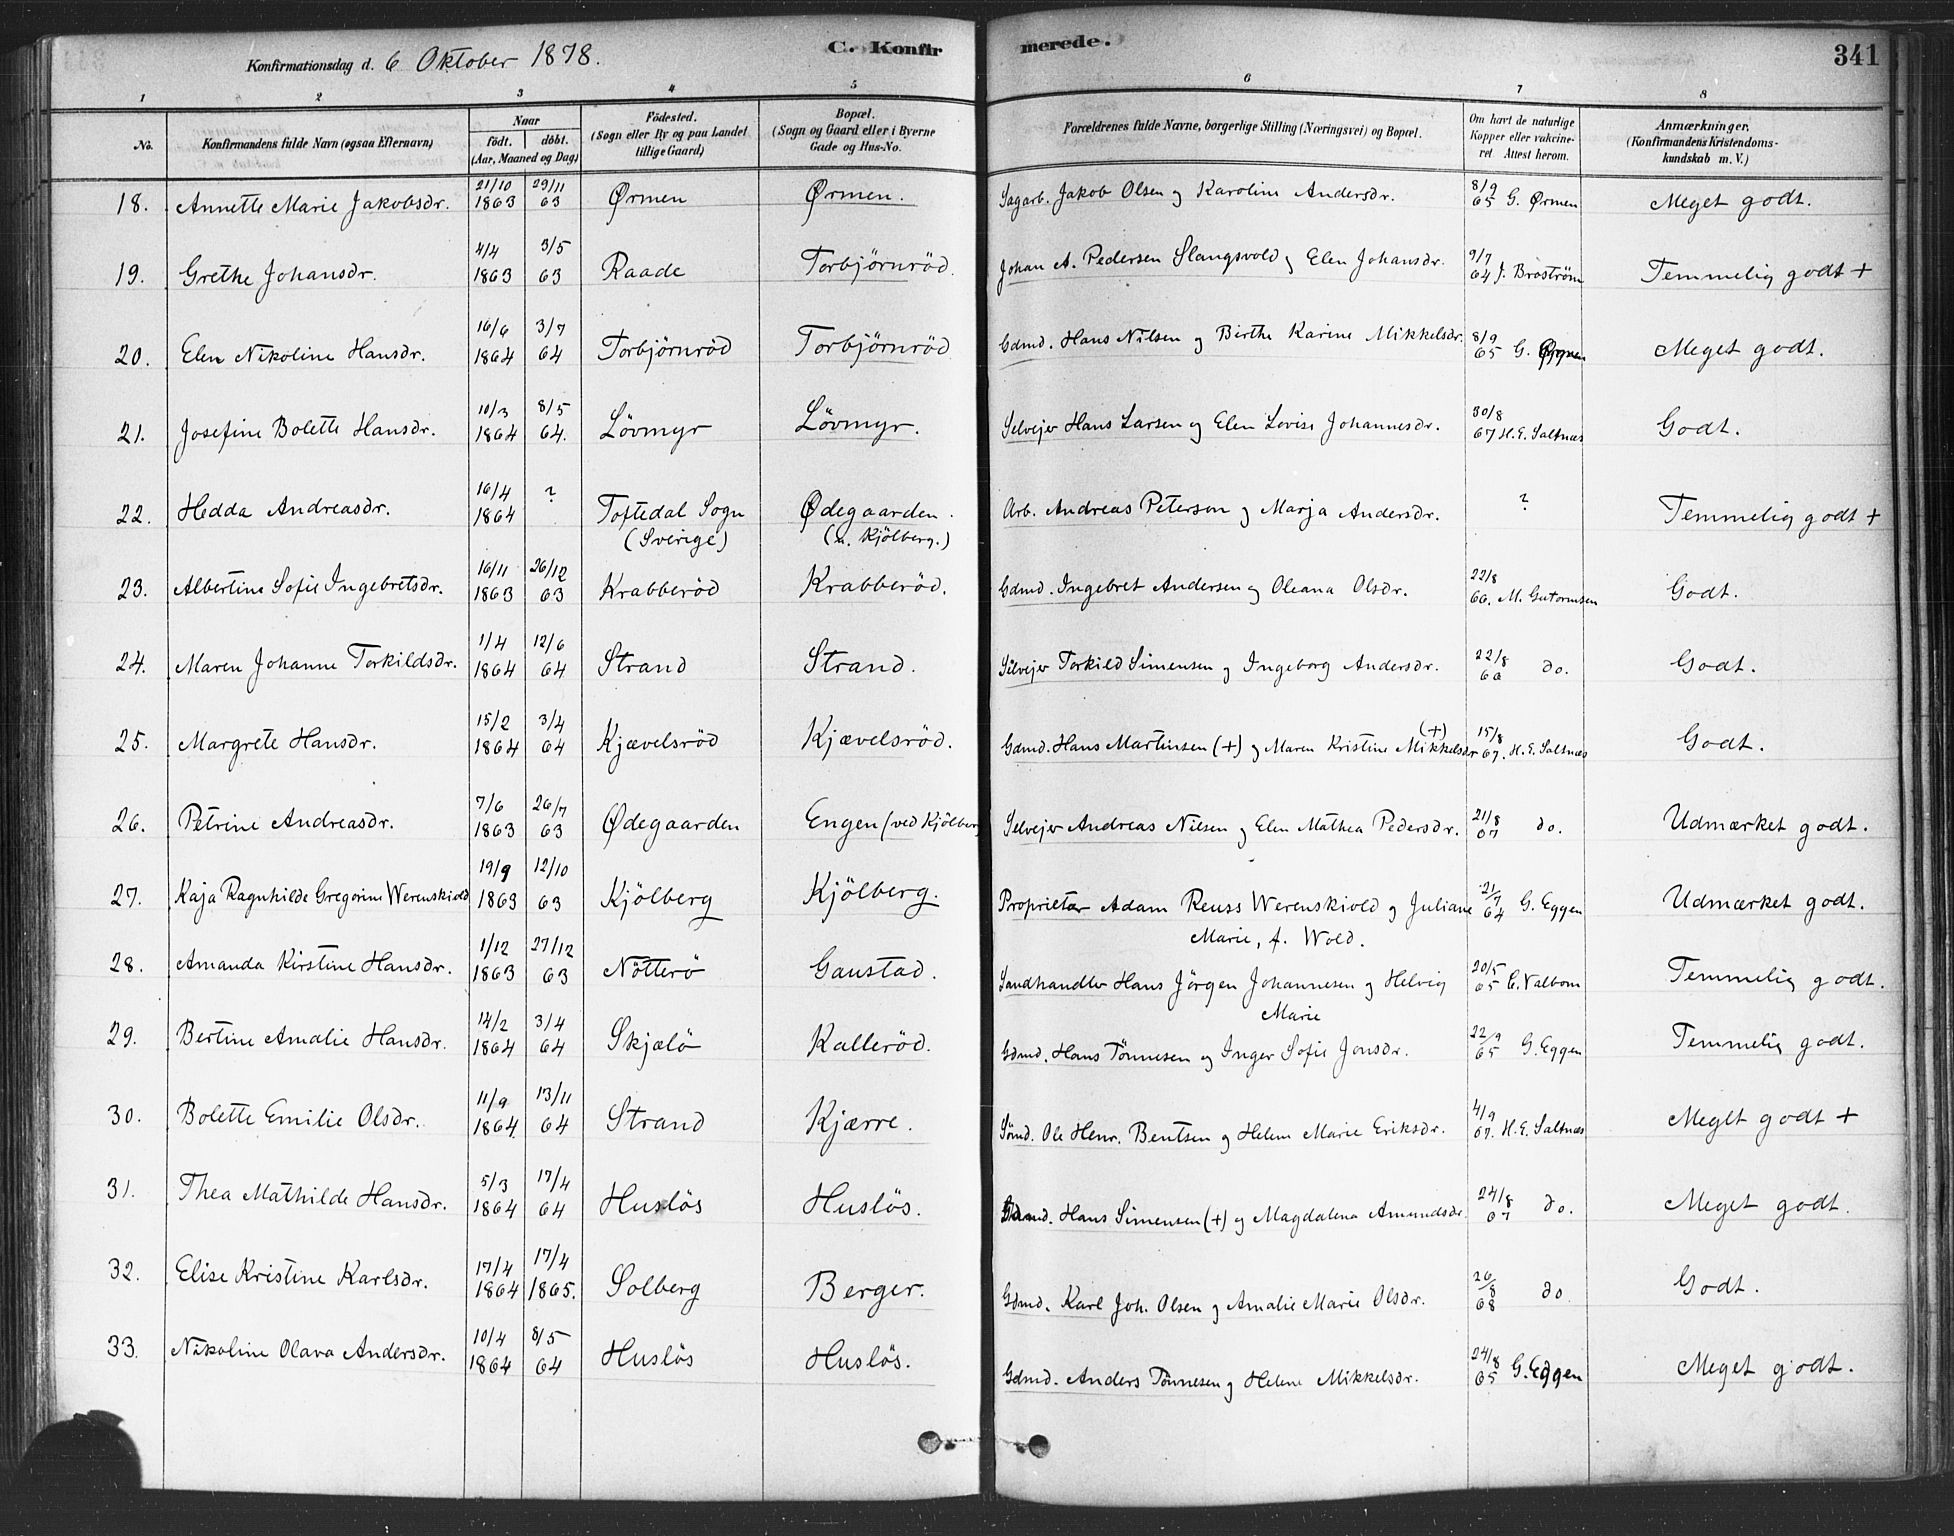 Konfirmationsdag d. 6 Oktober 1878.
C. Konfirmerede.
341
1 2 3 4 5 6 7 8
No. | Konfirmandens fulde Navn (ogsaa Efternavn) | Naar födt. döbt. (Aar, Maaned og Dag) | Födested. (Sogn eller By og paa Landet tillige Gaard) | Bopæl. (Sogn og Gaard eller i Byerne Gade og Hus-No. | Forældrenes fulde Navne, borgerlige Stilling (Næringsvei) og Bopæl. | Om havt de naturlige Kopper eller vakcineret Attest herom. | Anmærkninger. (Konfirmandens Kristendomskundskab m. V.)
18. Annette Marie Jakobsdr. 21/10 1863 29/11 63 Ørmen Ørmen. Sagarb. Jakob Olsen og Karoline Andersdr. 8/9 65 G. Ørmen Meget godt.
19. Grethe Johansdr. 4/4 1863 3/5 63 Raade Torbjørnröd. Johan A. Pedersen Slangsvold og Elen Johansdr. 9/7 64 J. Broström Temmelig godt +
20. Elen Nikoline Hansdr. 16/6 1864 3/7 64 Torbjørnröd Torbjørnröd Gdmd. Hans Nilsen og Birthe Karine Mikkelsdr. 8/9 65 G. Ørmen Meget godt.
21. Josefine Bolette Hansdr. 10/3 1864 8/5 64. Lövmyr Lövmyr. Selvejer Hans Larsen og Elen Lovise Johannesdr. 30/8 67 H. E. Saltnæs Godt.
22. Hedda Andreasdr. 16/4 1864 ? Toftedal Sogn (Sverige) Ødegaarden. (u. Kjölberg.) Arb. Andreas Peterson og Marja Andersdr. ? Temmelig godt +
23. Albertine Sofie Ingebretsdr. 16/11 1863 26/12 63 Krabberöd Krabberöd. Gdmd. Ingebret Andersen og Oleana Olsdr. 22/8 66. M. Gutormsen Godt.
24. Maren Johanne Torkildsdr. 1/4 1864 12/6 64 Strand Strand. Selvejer Torkild Simensen og Ingeborg Andersdr. 22/8 66 do. Godt.
25. Margrete Hansdr. 15/2 1864 3/4 64 Kjævelsröd Kjævelsröd. Gdmd. Hans Martinsen (+) og Maren Kristine Mikkelsdr (+) 15/8 67. H. E. Saltnæs Godt.
26. Petrine Andreasdr. 7/6 1863 26/7 63 Ødegaarden Engen (ved Kjölberg Selvejer Andreas Nilsen og Elen Mathea Pedersdr. 21/8 67 do. Udmærket godt.
27. Kaja Ragnhilde Gregorine Werenskiold 19/9 1863 12/10 63 Kjölberg Kjölberg. Proprietær Adam Reuss Werenskiold og Juliane Marie, f. Wold. 21/7 64 G. Eggen Udmærket godt.
28. Amanda Kirstine Hansdr. 1/12 1863 27/12 63 Nötterö Gaustad. Landhandler Hans Jörgen Johannesen og Helvig Marie 20/5 65 C. Valbom Temmelig godt.
29. Bertine Amalie Hansdr. 14/2 1864 3/4 64 Skjælö Kalleröd. Gdmd. Hans Tönnesen og Inger Sofie Jonsdr. 22/9 65 G. Eggen Temmelig godt.
30. Bolette Emilie Olsdr. 11/9 1864 13/11 64 Strand Kjærre. Sømd. Ole Henr. Bentsen og Helene Marie Eriksdr. 4/9 67. H. E. Saltnæs Meget godt +
31. Thea Mathilde Hansdr. 5/3 1864 17/4 64 Huslös Huslös. Gdmd. Hans Simensen (+) og Magdalena Amundsdr. 24/8 67 do. Meget godt.
32. Elise Kristine Karlsdr. 17/4 1864 17/4 1865. Solberg Berger. Gdmd. Karl Joh. Olsen og Amalie Marie Olsdr. 26/8 68 do Godt.
33. Nikoline Olava Andersdr. 10/4 1864 8/5 64 Huslös Huslös. Gdmd. Anders Tönnesen og Helene Mikkelsdr. 24/8 65 G. Eggen Meget godt.